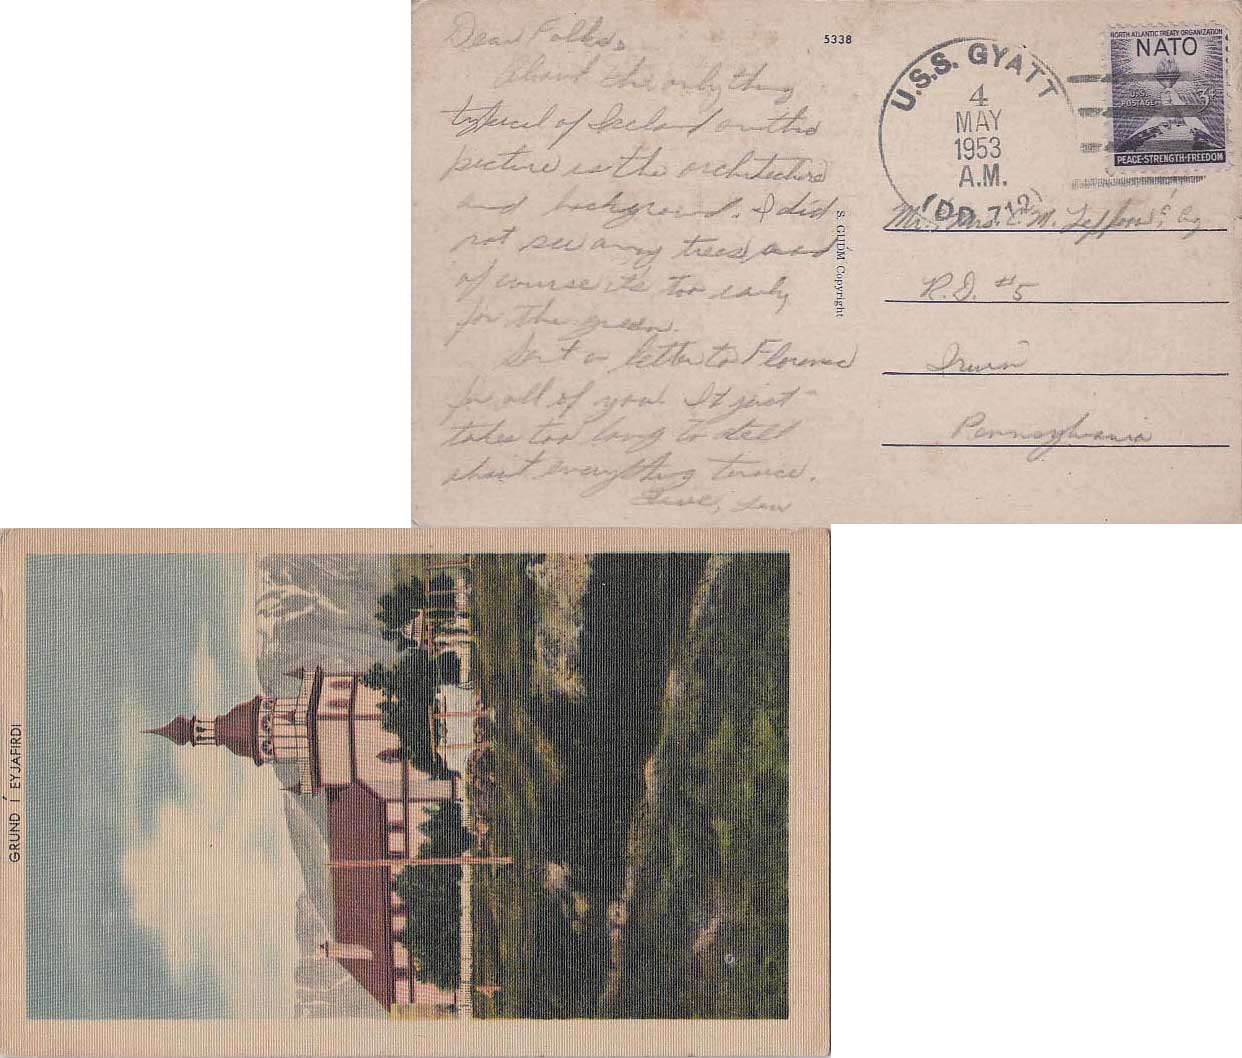 Dear Folks,
About the only thing
typical of Iceland on this
picture is the architecture
and background. I did
not see any trees and
of course its too early
for the green.
Sent a letter to Florence
for all of you. It just
takes too long to tell
about everything twice.
Love,
5338
S. GUÐM Copyright
U.S.S. GYATT
4
MAY
1953
A.M.
(DD 712)
NORTH ATLANTIC TREATY ORGANIZATION
NATO
U.S. POSTAGE 3¢
PEACE-STRENGTH-FREEDOM
Mr. Mrs. C. M.
R.D. #5
Irwin
Pennsylvania
GRUND Í EYJAFIRÐI